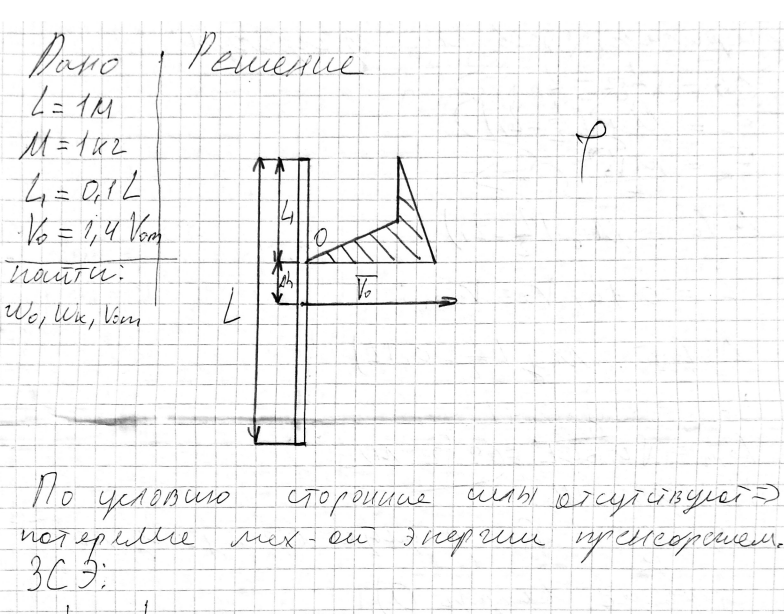 Дано Решение
L = 1м
M = 1кг
L₁ = 0,1L
V₀ = 1,4 V₀m
найти:
ω₀, ωк, V₀m
L₁
0
Δh
V̅₀
L
φ
По условию сторонние силы отсутствуют ⇒
потерями мех-ой энергии
ЗСЭ: